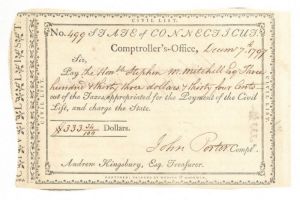 CIVIL LIST.
No. 499 STATE of CONNECTICUT.
Comptroller's-Office, Decemr 7th 1797
Sir,
Pay the Honble Stephen M. Mitchell Esqr Three
hundred & thirty three dollars & thirty four Cents
out of the Taxes appropriated for the Payment of the Civil
List, and charge the State.
$333 34/100 Dollars.
John Porter Compt.
Andrew Kingsbury, Esq. Treasurer.
HARTFORD: PRINTED BY HUDSON &